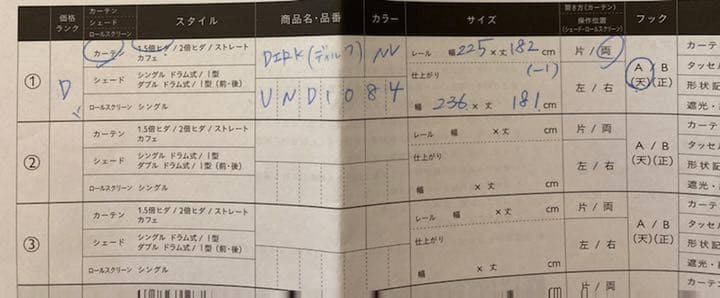 価格 ランク カーテン シェード ロールスクリーン スタイル 商品名・品番 カラー サイズ 開き方(カーテン) 操作位置 (シェード・ロールスクリーン) フック
① D カーテン 1.5倍ヒダ / 2倍ヒダ / ストレート カフェ DIRK(ディルク) NV レール 幅 225 × 丈 182 cm 片 / 両 A / B (天)(正) カーテ
シェード シングル ドラム式 / 1型 ダブル ドラム式 / 1型 (前・後) 仕上がり (-1) 左 / 右 タッセ 形状記
ロールスクリーン シングル UND1084 幅 236 × 丈 181 cm 遮光・
② カーテン 1.5倍ヒダ / 2倍ヒダ / ストレート カフェ レール 幅 × 丈 cm 片 / 両 A / B (天)(正) カーテ
シェード シングル ドラム式 / 1型 ダブル ドラム式 / 1型 (前・後) 仕上がり 左 / 右 タッセ 形状記
ロールスクリーン シングル 幅 × 丈 cm 遮光・
③ カーテン 1.5倍ヒダ / 2倍ヒダ / ストレート カフェ レール 幅 × 丈 cm 片 / 両 A / B (天)(正) カーテ
シェード シングル ドラム式 / 1型 ダブル ドラム式 / 1型 (前・後) 仕上がり 左 / 右 タッセ 形状記
ロールスクリーン シングル 幅 × 丈 cm 遮光・